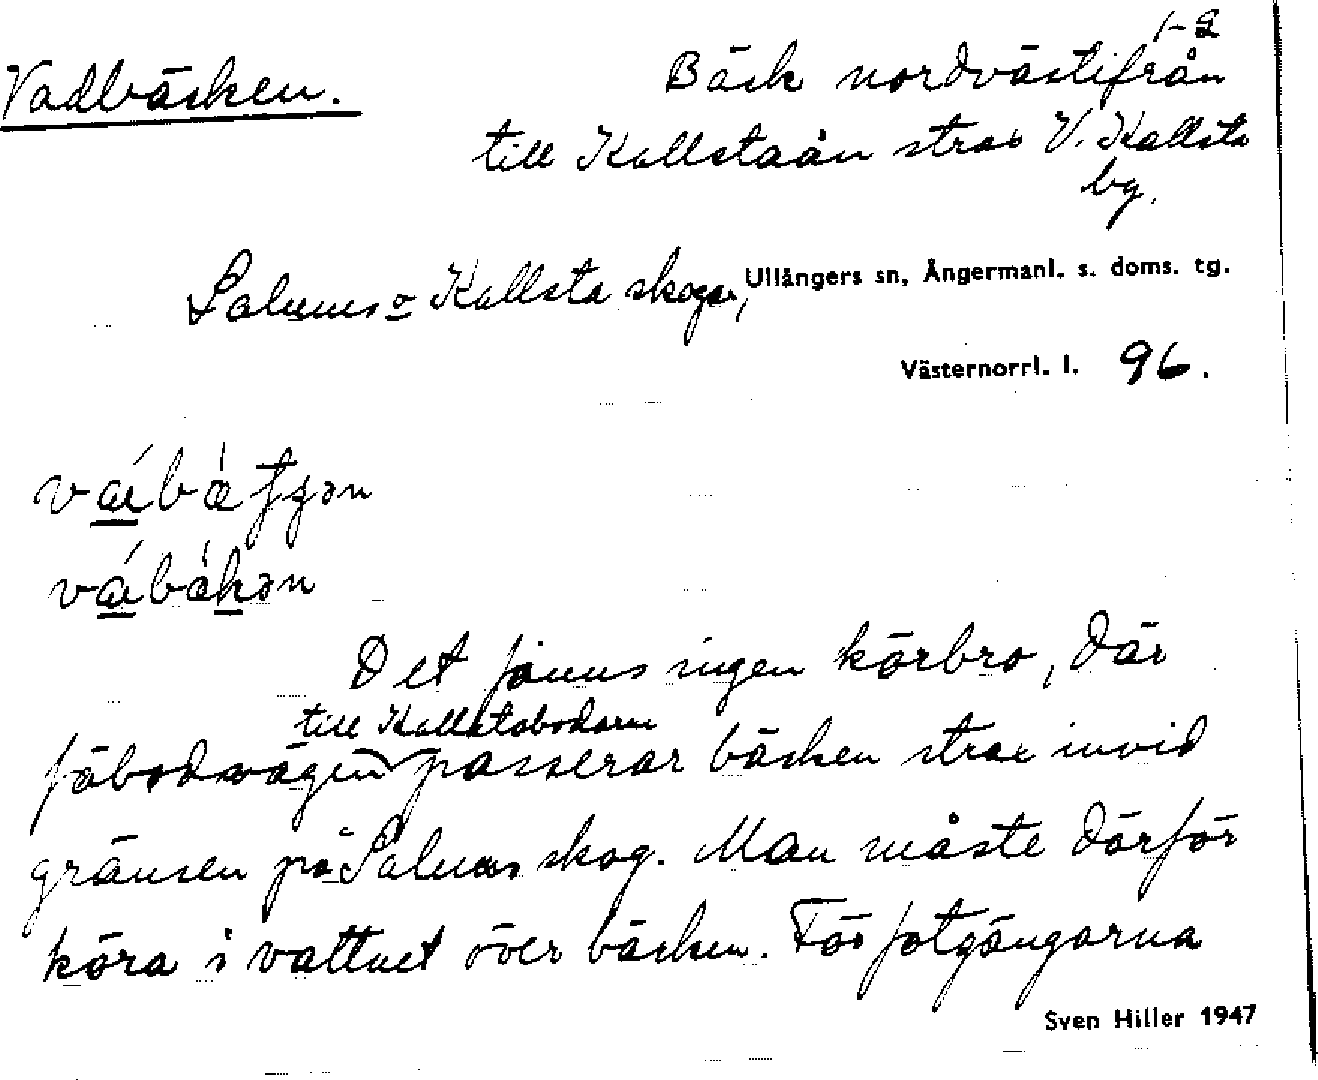 1-2
Vadbäcken.
Bäck nordvästifrån
till Kallstaån strax V. Kallsta
bg.
Salums o Kallsta skogar, Ullångers sn, Ångermanl. s. doms. tg.
Västernorrl. l. 96.
Det finns ingen körbro, där
till Kallstabodarna
fäbodvägen passerar bäcken strax invid
gränsen på Salums skog. Man måste därför
köra i vattnet över bäcken. För fotgängarna
Sven Hiller 1947